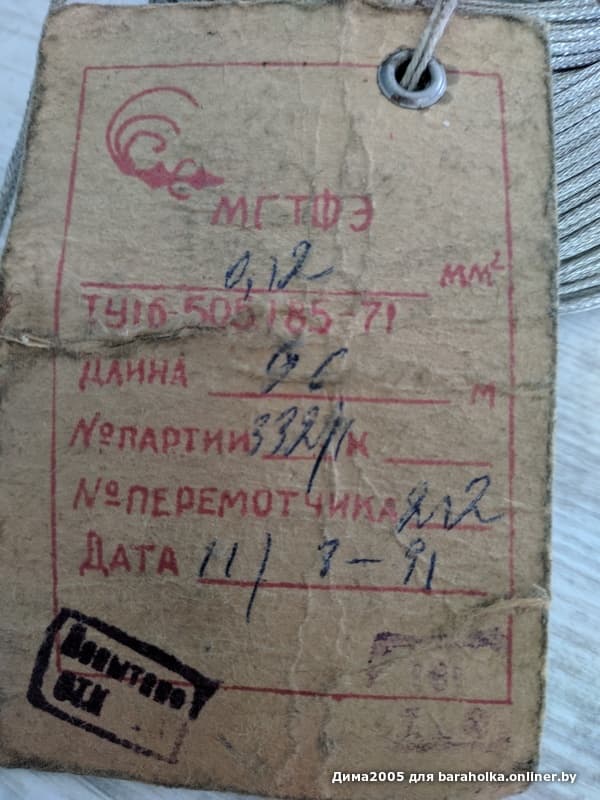 МГТФЭ
0,12 мм²
ТУ16-505185-71
ДЛИНА м
№ПАРТИИ 332/1 К
№ПЕРЕМОТЧИКА 222
ДАТА 11/ 8-91
ОТК
181
Дима2005 для baraholka.onliner.by